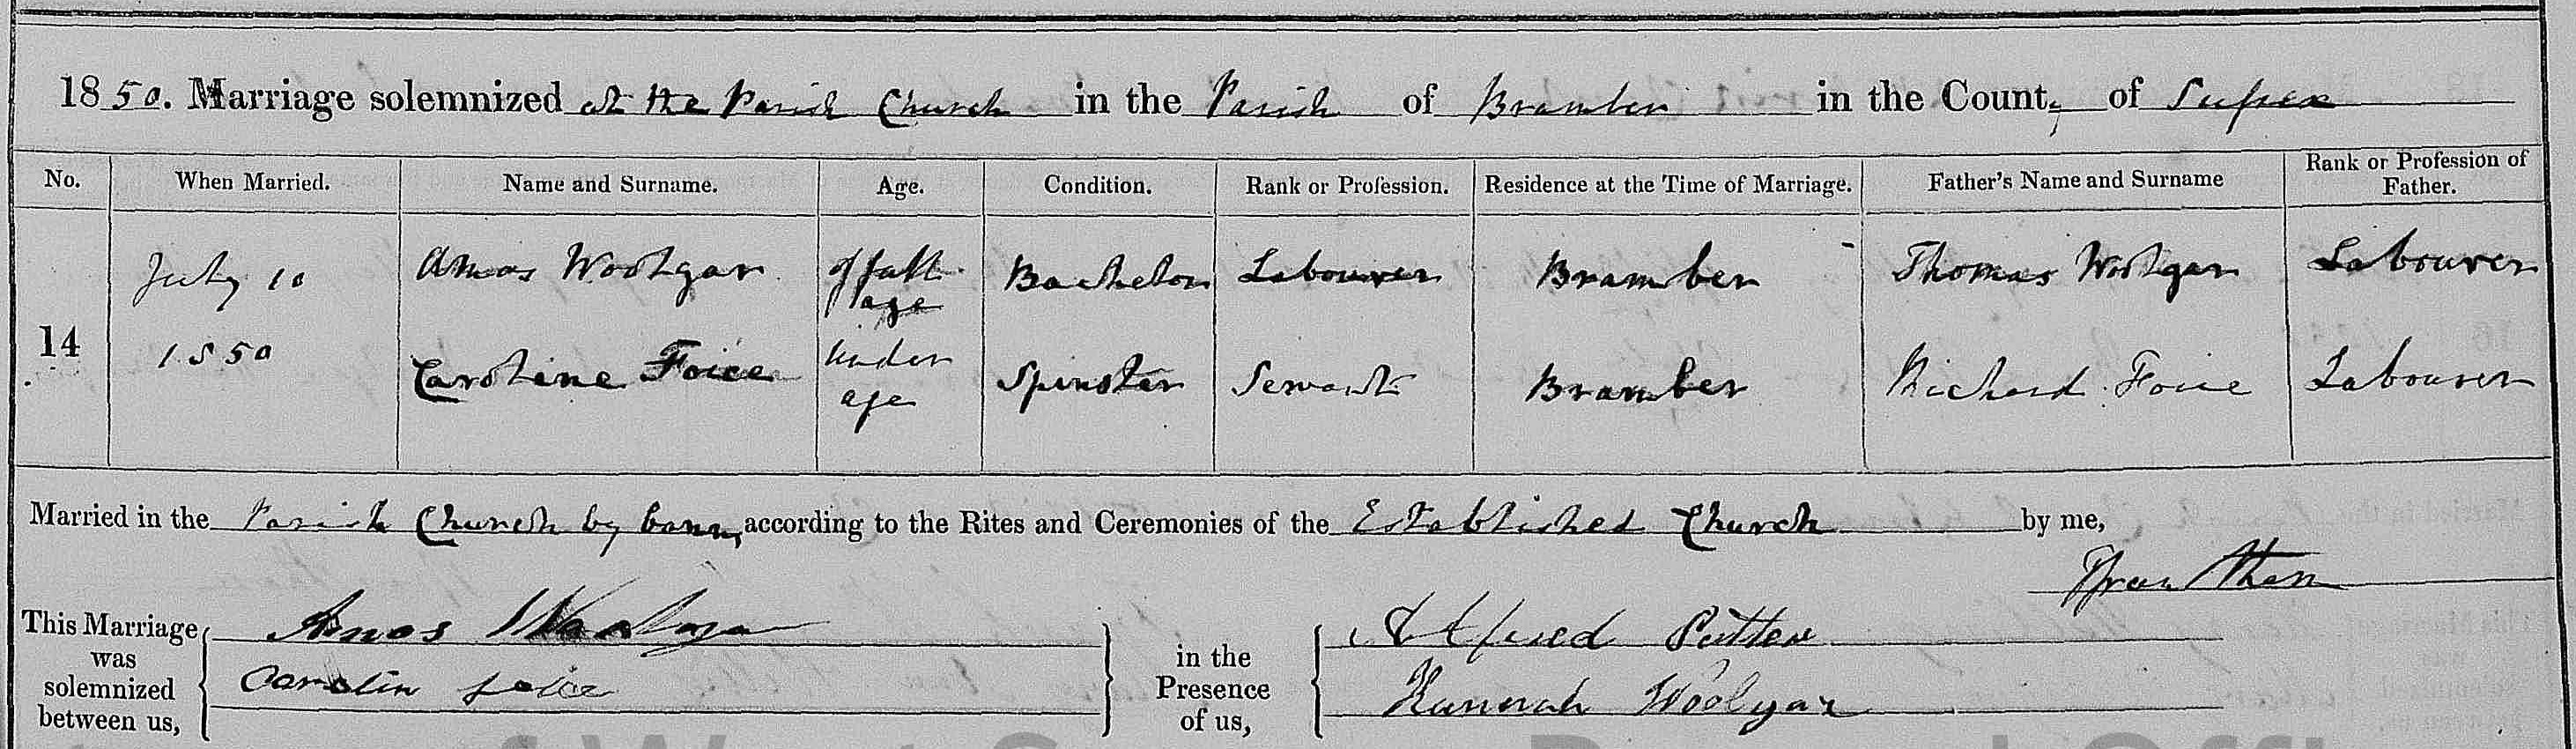 1850. Marriage solemnized at the Parish Church in the Parish of Bramber in the County of Sussex
No. When Married. Name and Surname. Age. Condition. Rank or Profession. Residence at the Time of Marriage. Father's Name and Surname Rank or Profession of Father.
14 July 10 1850
Amos Woolgar of full age Bachelor Labourer Bramber Thomas Woolgar Labourer
Caroline Foice under age Spinster Servant Bramber Richard Foice Labourer
Married in the Parish Church by banns according to the Rites and Ceremonies of the Established Church by me,
This Marriage was solemnized between us,
Amos Woolgar
Carolin foice
in the Presence of us,
Alfred Patten
Hannah Woolgar